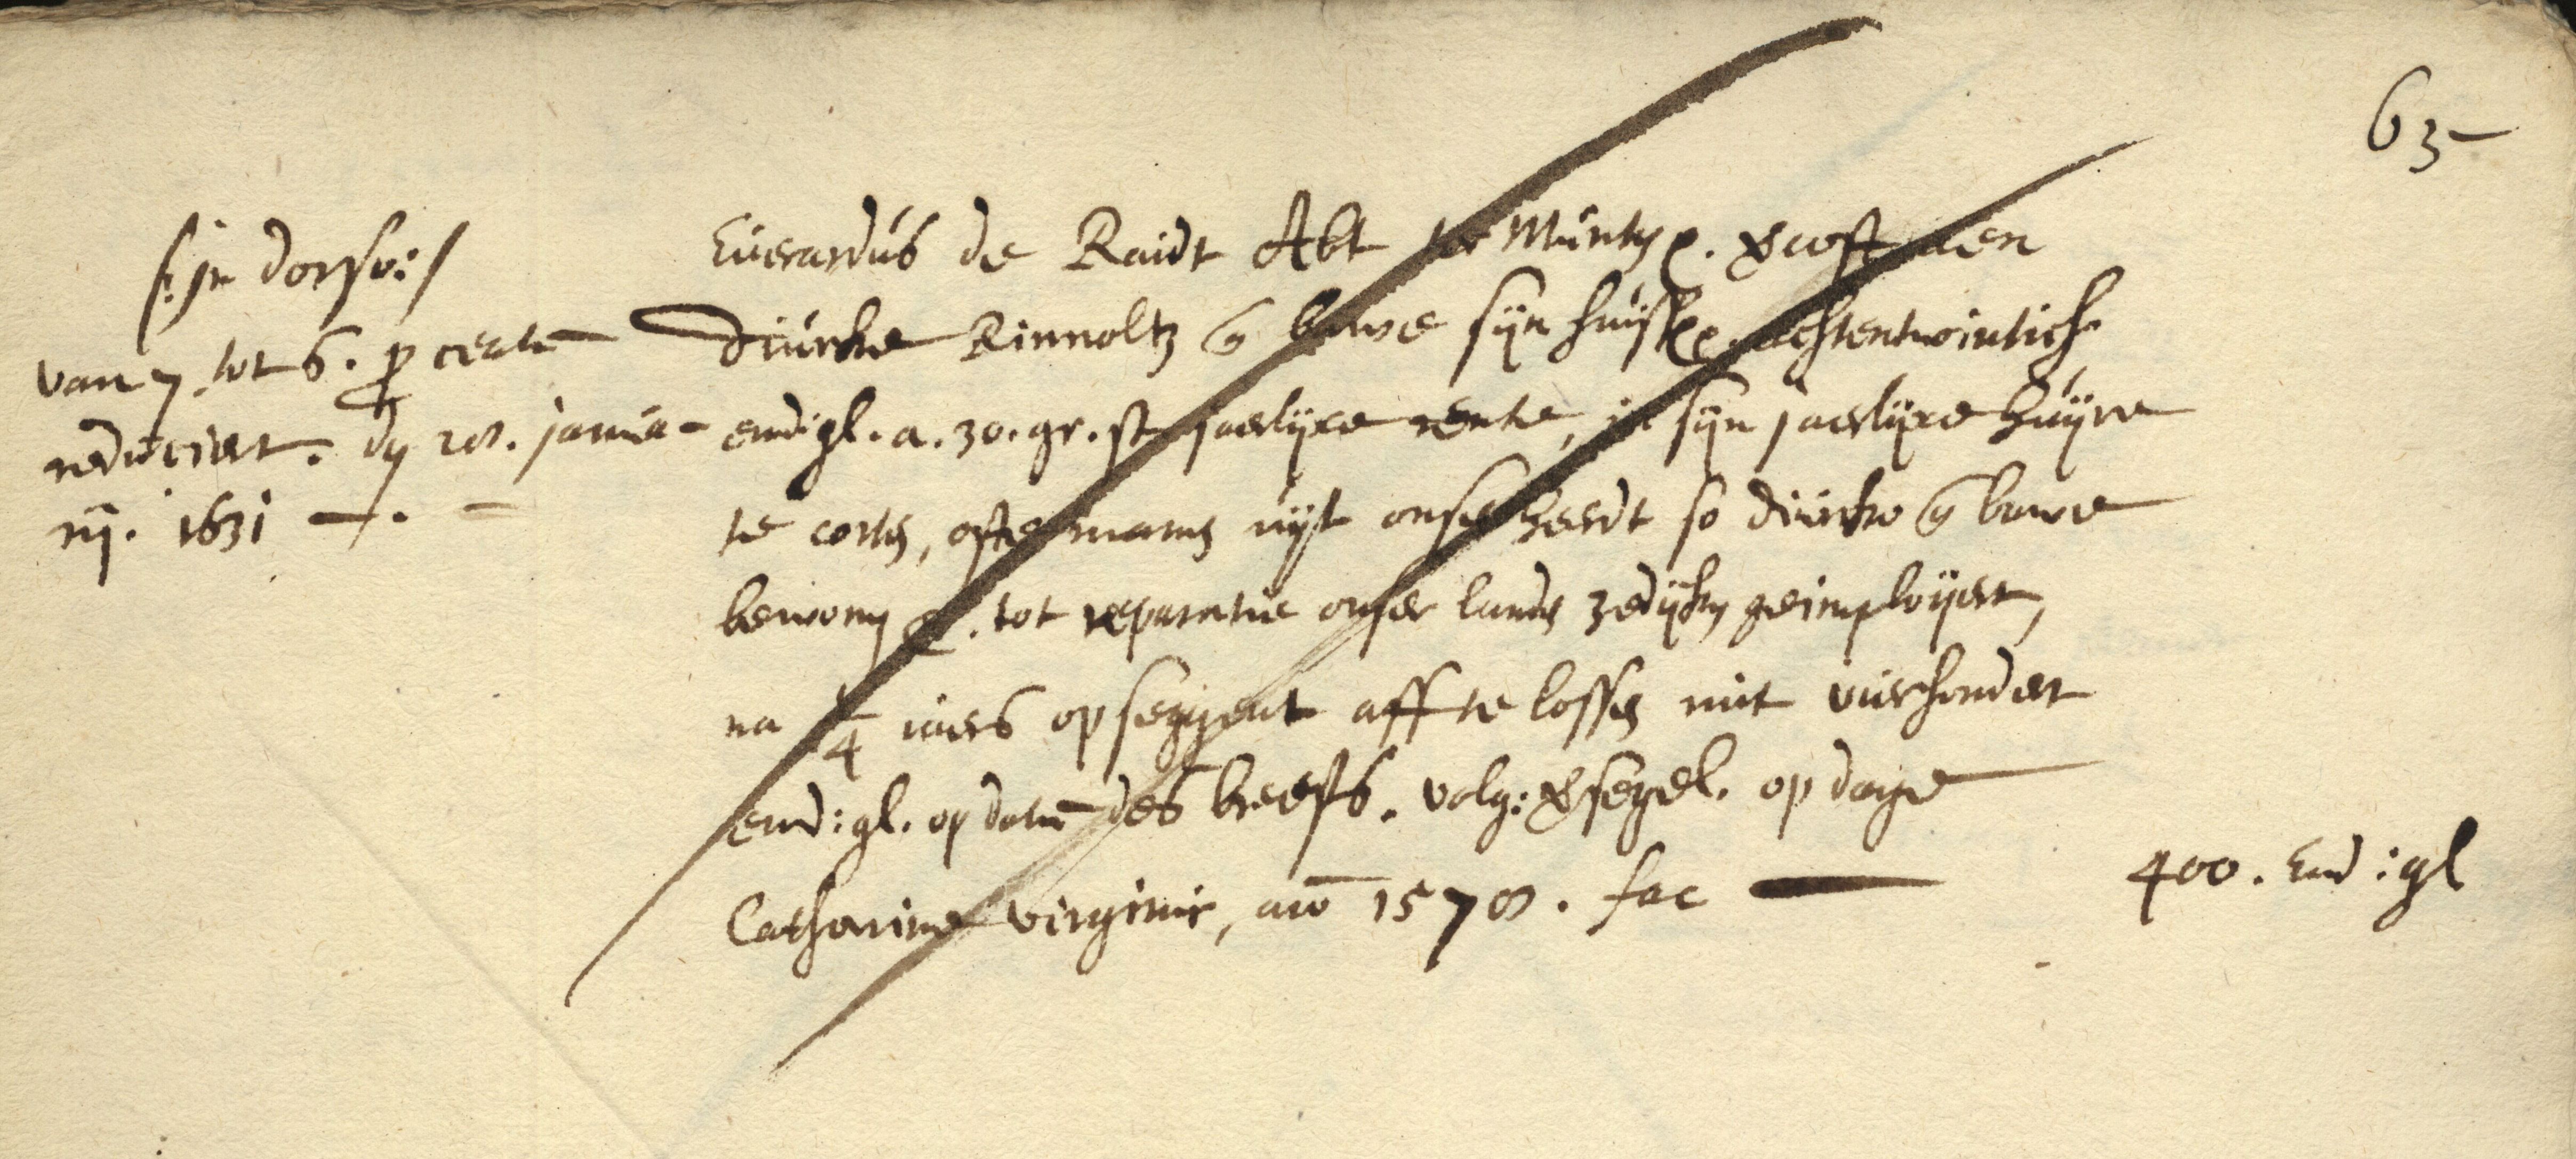 63
/: in dorso :/
van 7 tot 6. p centu
reduceert. dẏ 28. janua-
rij. 1631
Everardus de Raidt Abt te Munt. vercoft aen
Diurcke Rinnoltz & bauwe sijn huijs. achtentwintich
emd: gl. a. 30. gr. st jaerlijxe rente, in sijn jaerlijxe huijre
te corten, ofte manen uijt onse heerdt so diurcke & bauwe
bewonen. tot reparatie onser lands zedijken geimploijert,
na 1/4 iaers opseggent aff te lossen mit vierhondert
emd: gl. op datu des breefs. volg: versegel. op dage
Catharine virginis, ao 1578. fac 400. Emd: gl